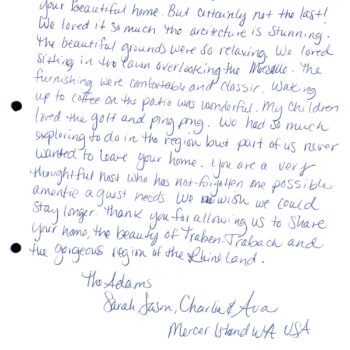 your beautiful home. But certainly not the last!
We loved it so much. The arcitcture is stunning.
The beautiful grounds were so relaxing. We loved
sitting in the lawn overlooking the Moselle. The
furnishing were comfortable and classic. Waking
up to coffee on the patio was wonderful. My children
loved the golf and ping ping. We had so much
exploring to do in the region but part of us never
wanted to leave your home. You are a very
thoughtful host who has not forgotten one possible
amentie a guest needs. We wish we could
stay longer. Thank you for allowing us to share
your home, the beauty of Traben-Trabach and
the gorgeous region of the Rhineland.
The Adams
Sarah, Jason, Charlie & Ava
Mercer Island WA USA